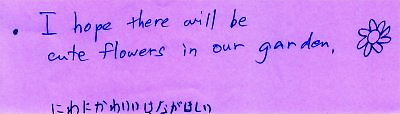 • I hope there will be
cute flowers in our garden.
にわにかわいいはながほしい